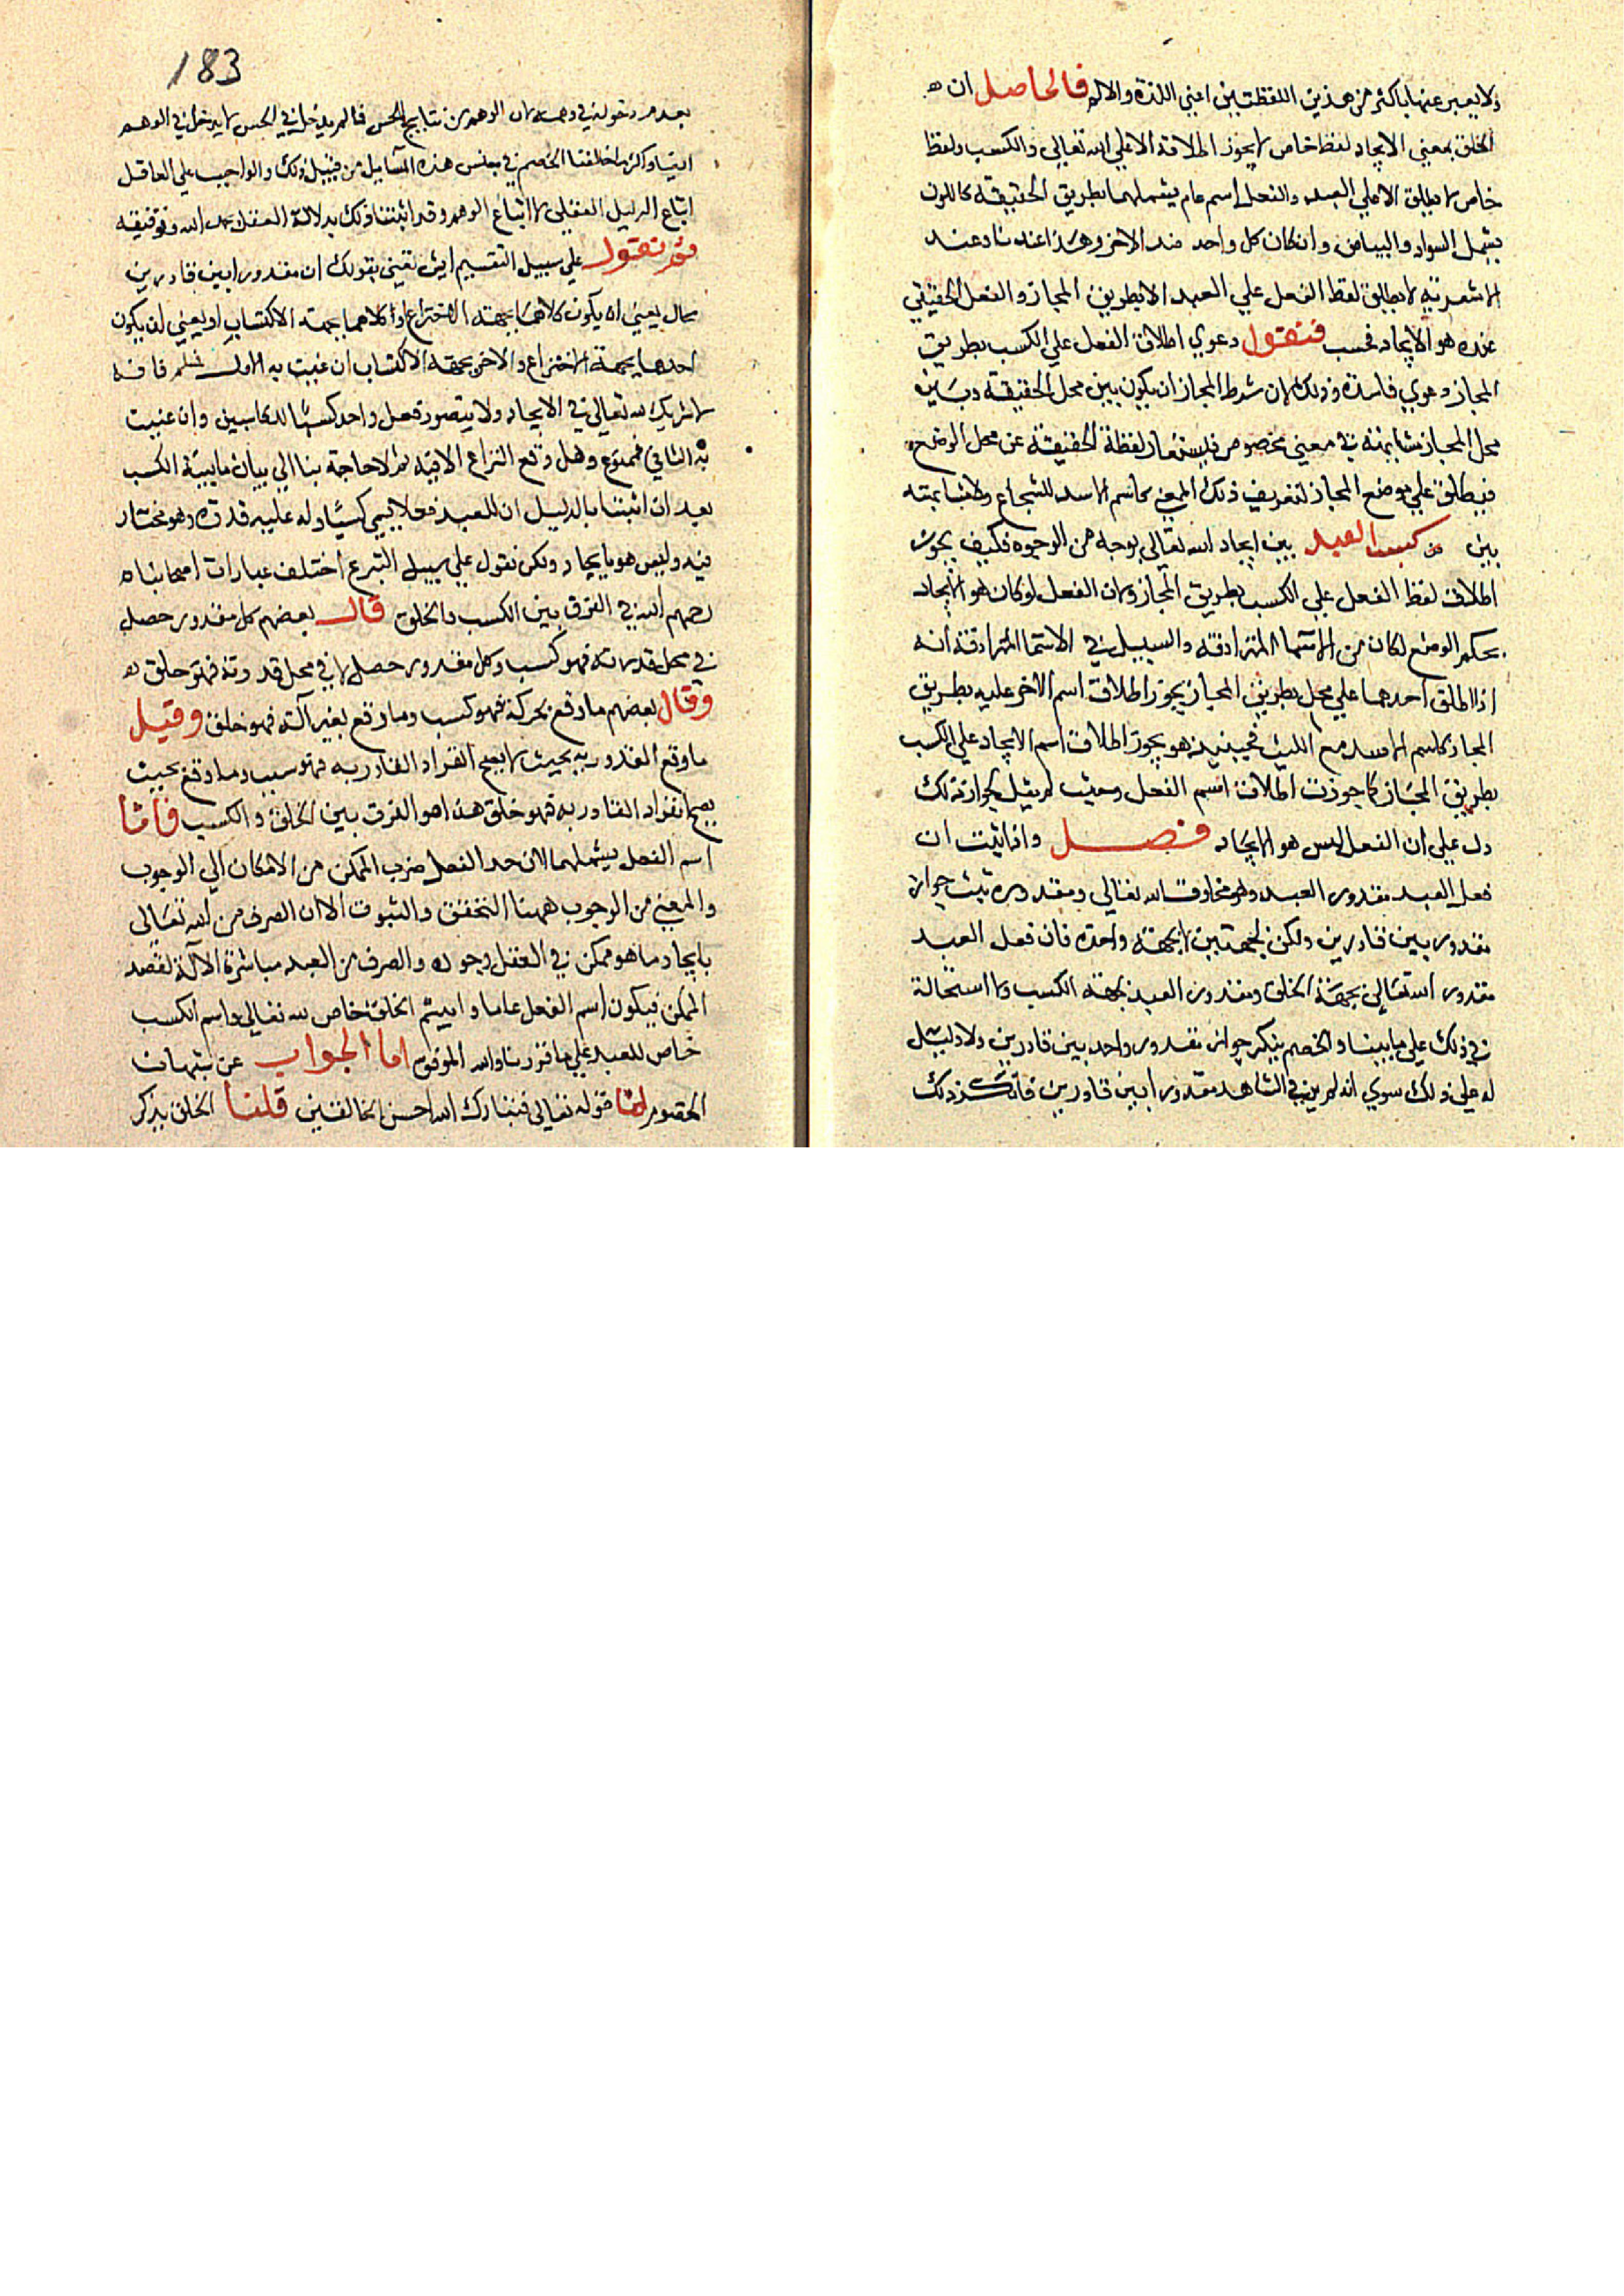 ولا يعبر عنها باكثر من هذين اللفظتين اعني اللذة والالم فالحاصل ان
الخلق بمعني الايجاد لفظ خاص لا يجوز اطلاقه الا علي الله تعالي والكسب ولفظ
خاص لا يطلق الا علي العبد والفعل اسم عام يشملهما بطريق الحقيقة كاللون
يشمل السواد والبياض وان كان كل واحد ضد الاخر وهذا عندنا وعند
الاشعرية لا يطلق لفظ الفعل علي العبد الا بطريق المجاز والفعل الحقيقي
عنده هو الايجاد فحسب فنقول دعوي اطلاق الفعل علي الكسب بطريق
المجاز دعوي فاسدة وذلك لان شرط المجاز ان يكون بين محل الحقيقة وبين
محل المجاز مشابهة في معني مخصوص فيستعار لفظة الحقيقة عن محل الوضع
فيطلق علي موضع المجاز لتعريف ذلك المعني كاسم الاسد للشجاع ولا مشابهة
بين كسب العبد بين ايجاد الله تعالي بوجه من الوجوه فكيف يجوز
اطلاق لفظ الفعل علي الكسب بطريق المجاز ولان الفعل لو كان هو الايجاد
بحكم الوضع لكان من الاسما المترادفة والسبيل في الاسما المترادفة انه
اذا اطلق احدهما علي محل بطريق المجاز يجوز اطلاق اسم الاخر عليه بطريق
المجاز كاسم الاسد مع الليث فحينيذ هو يجوز اطلاق اسم الايجاد علي الكسب
بطريق المجاز كما جوزت اطلاق اسم الفعل وحيث لم يقل بجواز ذلك
دل علي ان الفعل ليس هو الايجاد فصل واذا ثبت ان
فعل العبد مقدور العبد وهو مخلوق الله تعالي ومقدوره ثبت جواز
مقدور بين قادرين ولكن لجهتين لا بجهة واحدة فان فعل العبد
مقدور الله تعالي بجهة الخلق ومقدور العبد بجهة الكسب ولا استحالة
في ذلك علي ما بينا والخصم ينكر جواز مقدور واحد بين قادرين ولا دليل
له علي ذلك سوي انه لم ير في الشاهد مقدورا بين قادرين فانكر ذلك
183
بعدم دخوله في وهمه لان الوهم من نتايج الحس فما لم يدخل في الحس لا يدخل في الوهم
ايضا واكثر ما خالفنا الخصم في بعض هذه المسايل من قبيل ذلك والواجب علي العاقل
اتباع الدليل العقلي لا اتباع الوهم وقد اثبتنا ذلك بدلالة العقل بحمد الله وتوفيقه
ثم نقول علي سبيل التقسيم ايش تعني بقولك ان مقدورا بين قادرين
محال يعني ان يكون كلاهما بجهة الاختراع او كلاهما بجهة الاكتساب او يعني ان يكون
احدهما بجهة الاختراع والاخر بجهة الاكتساب ان عنيت به الاول فسلم فانه
لا شريك لله تعالي في الايجاد ولا يتصور فعل واحد كسبا لكاسبين وان عنيت
به الثاني فممنوع وهل وقع النزاع الا فيه ثم لا حاجة بنا الي بيان مايية الكسب
بعد ان اثبتنا بالدليل ان للعبد فعلا يسمي كسبا وله عليه قدرة وهو مختار
فيه وليس هو بايجاد ولكن نقول علي سبيل التبرع اختلف عبارات اصحابنا
رحمهم الله في الفرق بين الكسب والخلق قال بعضهم كل مقدور حصل
في محل قدرته فهو كسب وكل مقدور حصل لا في محل قدرته فهو خلق
وقال بعضهم ما وقع بحركة فهو كسب وما وقع بغير آلته فهو خلق وقيل
ما وقع المقدور به بحيث لا يصح انفراد القادر به فهو كسب وما وقع بحيث
يصح انفراد القادر به فهو خلق هذا هو الفرق بين الخلق والكسب فاما
اسم الفعل يشملهما لان حد الفعل صرف الممكن من الامكان الي الوجوب
والمعني من الوجوب ههنا التحقق والثبوت الا ان الصرف من الله تعالي
بايجاد ما هو ممكن في العقل وجوده والصرف من العبد مباشرة الآلة لقصد
الممكن فيكون اسم الفعل عاما واسم الخلق خاص لله تعالي واسم الكسب
خاص للعبد علي ما قررنا والله الموفق اما الجواب عن شبهات
الخصوم اما قوله تعالي فتبارك الله احسن الخالقين قلنا الخلق يذكر